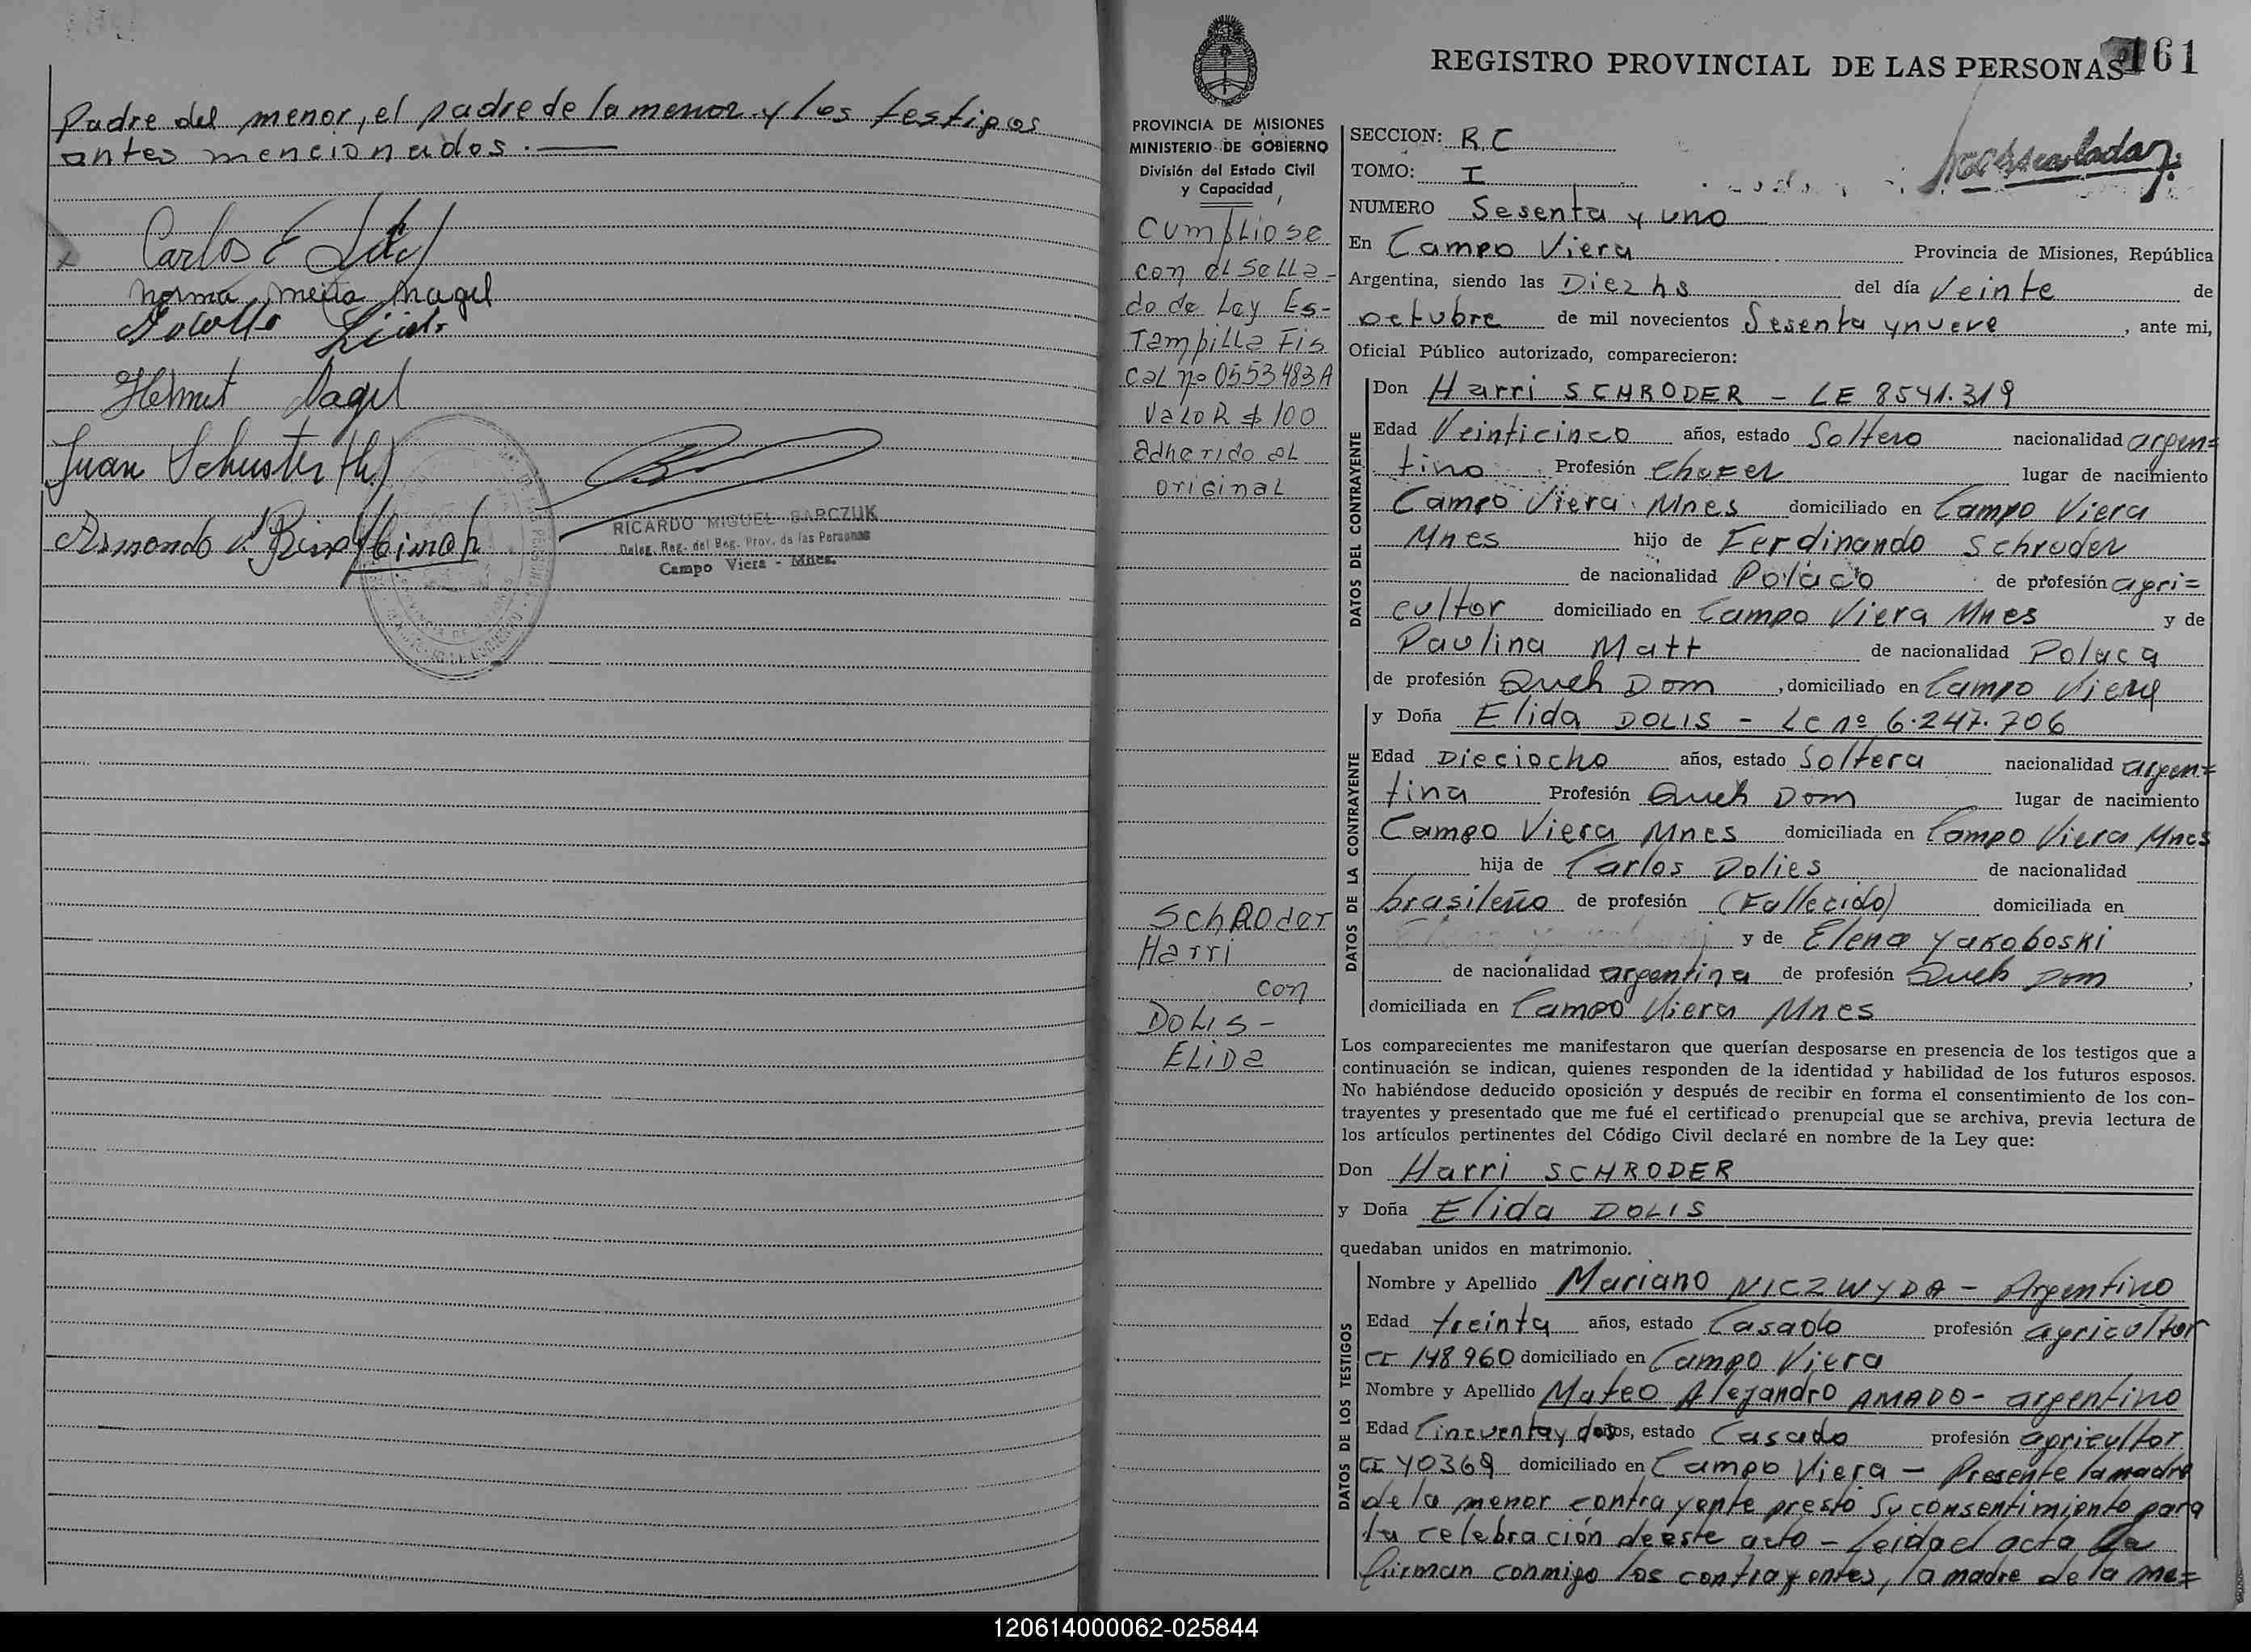 Padre del menor, el padre de la menor y los testigos
antes mencionados.
Carlos E
Norma Meita Nagel
Helmut Nagel
Juan Schuster (h.)
Armando
RICARDO MIGUEL BARCZUK
Deleg. Reg. del Reg. Prov. de las Personas
Campo Viera - Mnes.
PROVINCIA DE MISIONES
MINISTERIO DE GOBIERNO
División del Estado Civil
y Capacidad
Cumpliose
con el Sella-
do de Ley Es-
Tampilla Fis
cal nº 0553483A
Valor $ 100
adherido al
original
Schroder
Harri
con
Dolis-
Elida
REGISTRO PROVINCIAL DE LAS PERSONAS
161
SECCION: RC
TOMO: I
NUMERO Sesenta y uno
En Campo Viera Provincia de Misiones, República
Argentina, siendo las Diez hs del día Veinte de
octubre de mil novecientos Sesenta y nueve, ante mi,
Oficial Público autorizado, comparecieron:
DATOS DEL CONTRAYENTE
Don Harri SCHRODER - LE 8541.319
Edad Veinticinco años, estado Soltero nacionalidad argen=
tino Profesión Chofer lugar de nacimiento
Campo Viera Mnes domiciliado en Campo Viera
Mnes hijo de Ferdinando Schroder
de nacionalidad Polaco de profesión agri=
cultor domiciliado en Campo Viera Mnes y de
Paulina Matt de nacionalidad Polaca
de profesión Queh Dom, domiciliado en Campo Viera
DATOS DE LA CONTRAYENTE
y Doña Elida DOLIS - LC nº 6.247.706
Edad Dieciocho años, estado Soltera nacionalidad argen=
tina Profesión Queh Dom lugar de nacimiento
Campo Viera Mnes domiciliada en Campo Viera Mnes
hija de Carlos Dolies de nacionalidad
brasileño de profesión (Fallecido) domiciliada en
y de Elena Yakoboski
de nacionalidad argentina de profesión Queh Dom,
domiciliada en Campo Viera Mnes
Los comparecientes me manifestaron que querían desposarse en presencia de los testigos que a
continuación se indican, quienes responden de la identidad y habilidad de los futuros esposos.
No habiéndose deducido oposición y después de recibir en forma el consentimiento de los con-
trayentes y presentado que me fué el certificado prenupcial que se archiva, previa lectura de
los artículos pertinentes del Código Civil declaré en nombre de la Ley que:
Don Harri SCHRODER
y Doña Elida DOLIS
quedaban unidos en matrimonio.
DATOS DE LOS TESTIGOS
Nombre y Apellido Mariano NICZWYDA - Argentino
Edad treinta años, estado Casado profesión agricultor
CI 148960 domiciliado en Campo Viera
Nombre y Apellido Mateo Alejandro AMADO - argentino
Edad Cincuenta y dos años, estado Casado profesión agricultor
CI 40369 domiciliado en Campo Viera - Presente la madre
de la menor contrayente prestó su consentimiento para
la celebración de este acto - Leida el acta la
firman conmigo los contrayentes, la madre de la me=
120614000062-025844